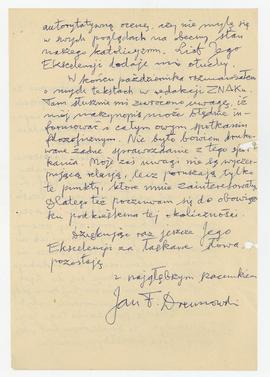 autorytatywną ocenę, czy nie mylę się
w swych poglądach na obecny stan
naszego katolicyzmu. List Jego
Ekscelencji dodaje mi otuchy.
W końcu października rozmawiałem
o mych tekstach w redakcji ZNAKu.
Tam słusznie mi zwrócono uwagę, iż
mój maszynopis może błędnie in-
formować o całym owym spotkaniu
filozoficznym. Nie było bowiem druko-
wane żadne sprawozdanie z tego spot-
kania. Moje zaś uwagi nie są wyczer-
pującą relacją, lecz poruszają tylko
te punkty, które mnie zainteresowały,
dlatego też poczuwam się do obowiąz-
ku podkreślenia tej okoliczności.
Dziękując raz jeszcze Jego
Ekscelencji za łaskawe słowa
pozostaję
z najgłębszym szacunkiem
Jan F. Drewnowski